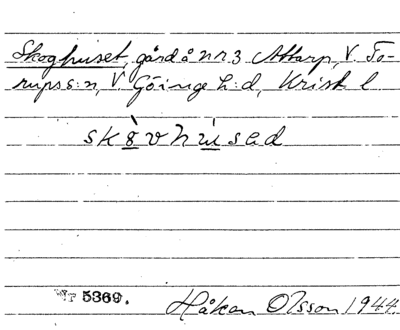 Skoghuset, gård å nr 3 Attarp, V. To-
rups s:n, V. Göinge h:d, Krist. l
skövhusad
Nr 5369.
Håkan Olsson 1944.